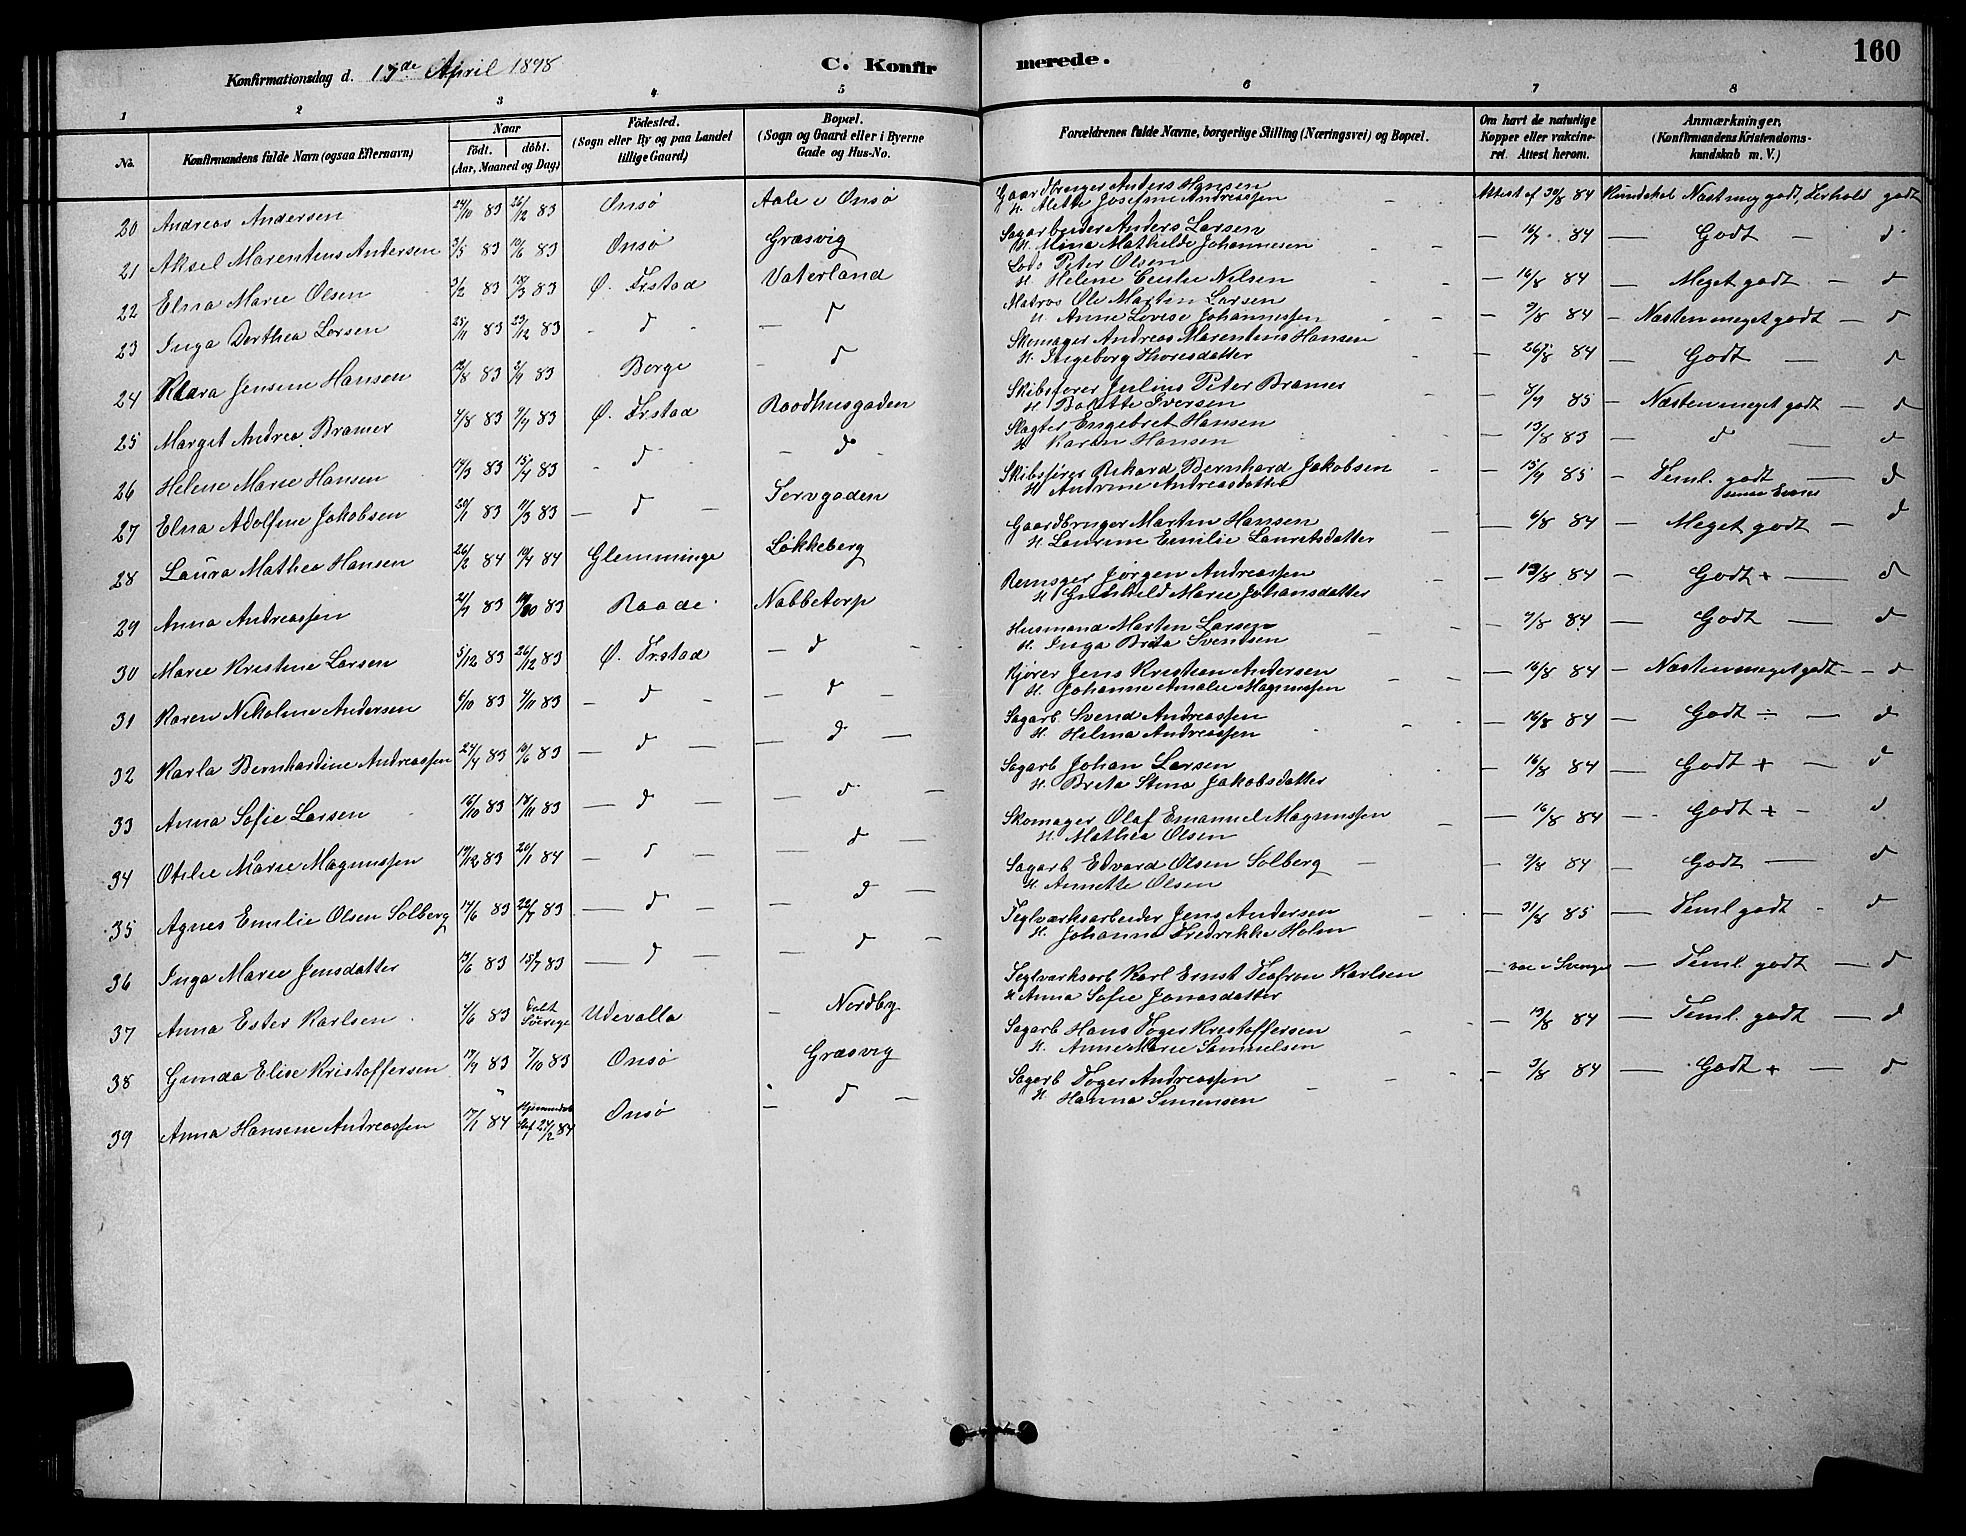 Konfirmationsdag d. April 1898
C. Konfirmerede.
160
1 2 3 4 5 6 7 8
No.
Konfirmandens fulde Navn (ogsaa Efternavn)
Naar
födt. döbt.
(Aar, Maaned og Dag)
Födested.
(Sogn eller By og paa Landet
tillige Gaard)
Bopæl.
(Sogn og Gaard eller i Byerne
Gade og Hus-No.
Forældrenes fulde Navne, borgerlige Stilling (Næringsvei) og Bopæl.
Om havt de naturlige
Kopper eller vakcine-
ret. Attest herom.
Anmærkninger.
(Konfirmandens Kristendoms-
kundskab m. V.)
20 Andreas Andersen 24/10 83 26/12 83 Onsø Aale i Onsø Gaardbruger Anders Hansen
H. Mette Josefine Andreassen - - Attest af 30/8 84 Kundskab Næst meg godt, Forhold godt
21 Aksel Marentius Andersen 3/5 83 10/6 83 Onsø Græsvig Sagarbeider Anders Larsen
H. Mina Mathilde Johannesen - - - 84 - Godt - d
22 Elna Marie Olsen 2/2 83 18/3 83 Ø. Frstad Vaterland Lods Peter Olsen
H. Helene Nilsen - - - 16/8 84 - Meget godt - d
23 Inga Dorthea Larsen 25/11 83 23/12 83 - d - - d Matros Ole Martin Larsen
H. Anne Lovise Johannessen - - - 9/8 84 - Næsten meget godt - d
24 Klara Jensine Hansen 12/8 83 2/9 83 Borge - d Skomager Andreas Marentius Hansen
H. Ingeborg Thoresdatter - - 26/8 84 - Godt - d
25 Marget Andrea Bramer 4/8 83 9/9 83 Ø. Frstad Raadhusgaden Skibsfører Julius Peter Bramer
H. Bolette Iversen - - 8/9 85 - Næsten meget godt - d
26 Helene Marie Hansen 14/3 83 15/4 83 - d - - d - Slagter Engebret Hansen
H. Karen Hansen - 13/8 83 - d - d
27 Elna Adolfine Jakobsen 20/1 83 11/3 83 - d - Torvgaden Skibsfører Rikard Bernhard Jakobsen
H. Andrine Andreasdatter - - 15/9 85 - Teml. godt - d
28 Laura Mathea Hansen 26/2 84 14/4 84 Glemminge Løkkeberg Gaardbruger Martin Hansen
H. Laurine Emilie Lauretsdatter - - 6/8 84 - Meget godt - d
29 Anna Andreassen 21/9 83 83 Raade Nabbetorp Jørgen Andreassen
H. Gunhild Marie Johansdatter - - 13/8 84 - Godt + - d
30 Marie Kristine Larsen 5/12 83 26/12 83 Ø. Frstad - d - Husmand Martin Larsen
H. Inga Brita Svendsen - - - 9/8 84 - Godt - d
31 Karen Nikoline Andersen 6/10 83 4/11 83 - d - - d - Kjører Jens Kristian Andersen
H. Johanne Amalie Magnussen - - - 16/8 84 - Næsten meget godt - - d
32 Karla Bernhardine Andreassen 24/4 83 10/6 83 - d - - d - Sagarb. Svend Andreassen
H. Hilma Andreassen - - - 16/8 84 - Godt ÷ - d
33 Anna Sofie Larsen 16/10 83 18/11 83 - d - - d - Sagarb Johan Larsen
H. Brita Stina Jakobsdatter - 16/8 84 - Godt + - d
34 Otilie Marie Magnussen 19/12 83 20/1 84 - d - - d - Skomager Olaf Emanuel Magnussen
H. Mathea Olsen - - 16/8 84 - Godt + - d
35 Agnes Emilie Olsen Solberg 17/6 83 22/7 83 - d - - d - Sagarb Edvard Olsen Solberg -
H. Annette Olsen - 9/8 84 - Godt - d
36 Inga Marie Jensdatter 13/6 83 15/7 83 - d - - d - Teglværksarbeider Jens Andersen
H. Johanne Fredrikke Holm - - 31/8 85 - Teml godt - d
37 Anna Ester Karlsen 4/6 83 Döbt Sverige Udevalla - Nordby Teglværksarb Karl Ernst Karlsen
H. Anna Sofie Jonasdatter - vac i Sverige - Teml. godt - d
38 Gunda Elise Kristoffersen 17/9 83 7/10 83 Onsø Græsvig Sagarb Hans Kristoffersen
H. Anne Marie Samuelsen - - - 13/8 84 - Teml. godt - d
39 Anna Hansine Andreassen 17/1 84 Hjemmedøb Staf 24/2 84 Onsø - d - Sagarb Andreassen
H. Hanna Simensen - - - 3/8 84 - Godt + - d